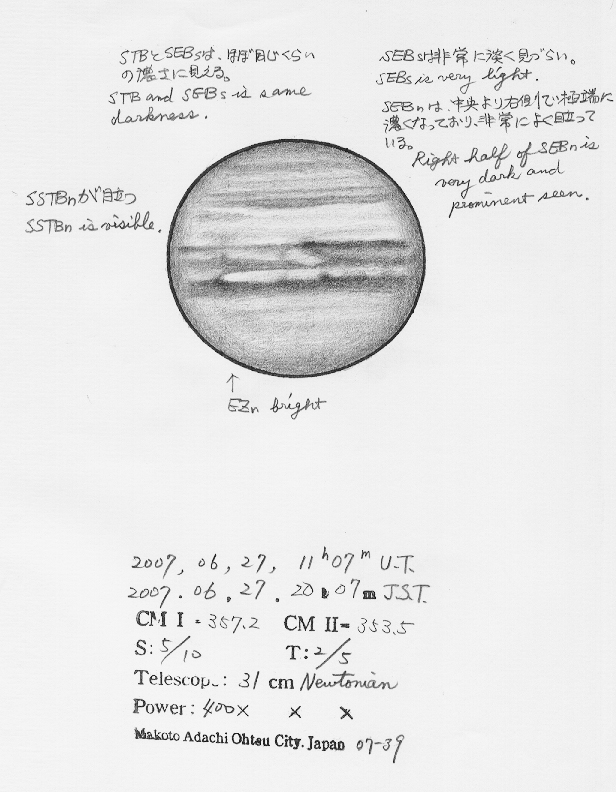 STBとSEBsは、ほぼ同じくらい
の濃さに見える。
STB and SEBs is same
darkness.
SEBsは非常に淡く見づらい。
SEBs is very light.
SEBnは、中央より右側で、極端に
濃くなっており、非常によく目立って
いる。
Right half of SEBn is
very dark and
prominent seen.
SSTBnが目立つ
SSTBn is visible.
↑
EZn bright
2007, 06, 27, 11h07m U.T.
2007. 06. 27. 20h07m J.S.T.
CM I = 357.2 CM II= 353.5
S: 5/10 T: 2/5
Telescop.: 31 cm Newtonian
Power: 400× × ×
Makoto Adachi Ohtsu City. Japan 07-39